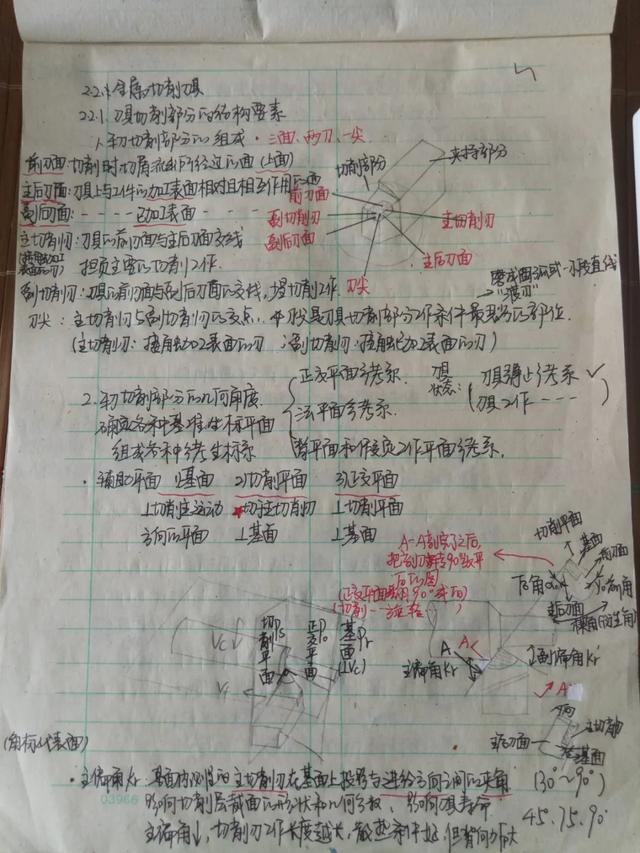 2.2 金属切削刀具
2.2.1 刀具切削部分的结构要素
1、切削部分的组成 · 三面、两刃、一尖
前刀面:切削时切屑流出所经过的面(上面)
主后刀面:刀具上与工件的加工表面相对且相互作用的面
副后刀面: - - - - 已加工表面 - - - - -
主切削刃:刀具的前刀面与主后刀面交线
担负主要的切削工作.
副切削刃:刀具的前刀面与副后刀面的交线,切削工作.
刀尖:主切削刃与副切削刃的交点. 刀尖是刀具切削部分工作条件最
的部位.
(主切削刃:接触加工表面的刃;副切削刃:接触已加工表面的刃)
切削部分
夹持部分
前刀面
副切削刃
副后刀面
主切削刃
主后刀面
刀尖
磨成圆弧或一小段直线
2、切削部分的几何角度
确定各种基准坐标平面
组成各种参考坐标系
正交平面参考系.
法平面参考系.
背平面和假定工作平面参考系.
刀具状态:
刀具静止参考系 ✓
刀具工作 - - - -
· 辅助平面 1)基面 2)切削平面 3)正交平面
⊥切削主运动 切主切削刃 ⊥切削平面
方向的平面 ⊥基面 ⊥基面
A-A剖完了之后,
把 90°
切削平面Ps
正交平面Po
基面Pr
(⊥Vc)
Vc
Vf
A
A
主偏角Kr
副偏角Kr'
A
切削平面
基面
前刀面
后角αo
γo前角
主后刀面
楔角
主后刀面
主切削刃
基面
(角标代表面)
· 主偏角Kr:基面内测量的主切削刃在基面上投影与进给方向之间的夹角 (30°~90°)
影响切削层截面的形状和几何参数,影响刀具寿命 45°.75.90°
主偏角↓,切削刃工作长度越长,散热条件好,但背向力大